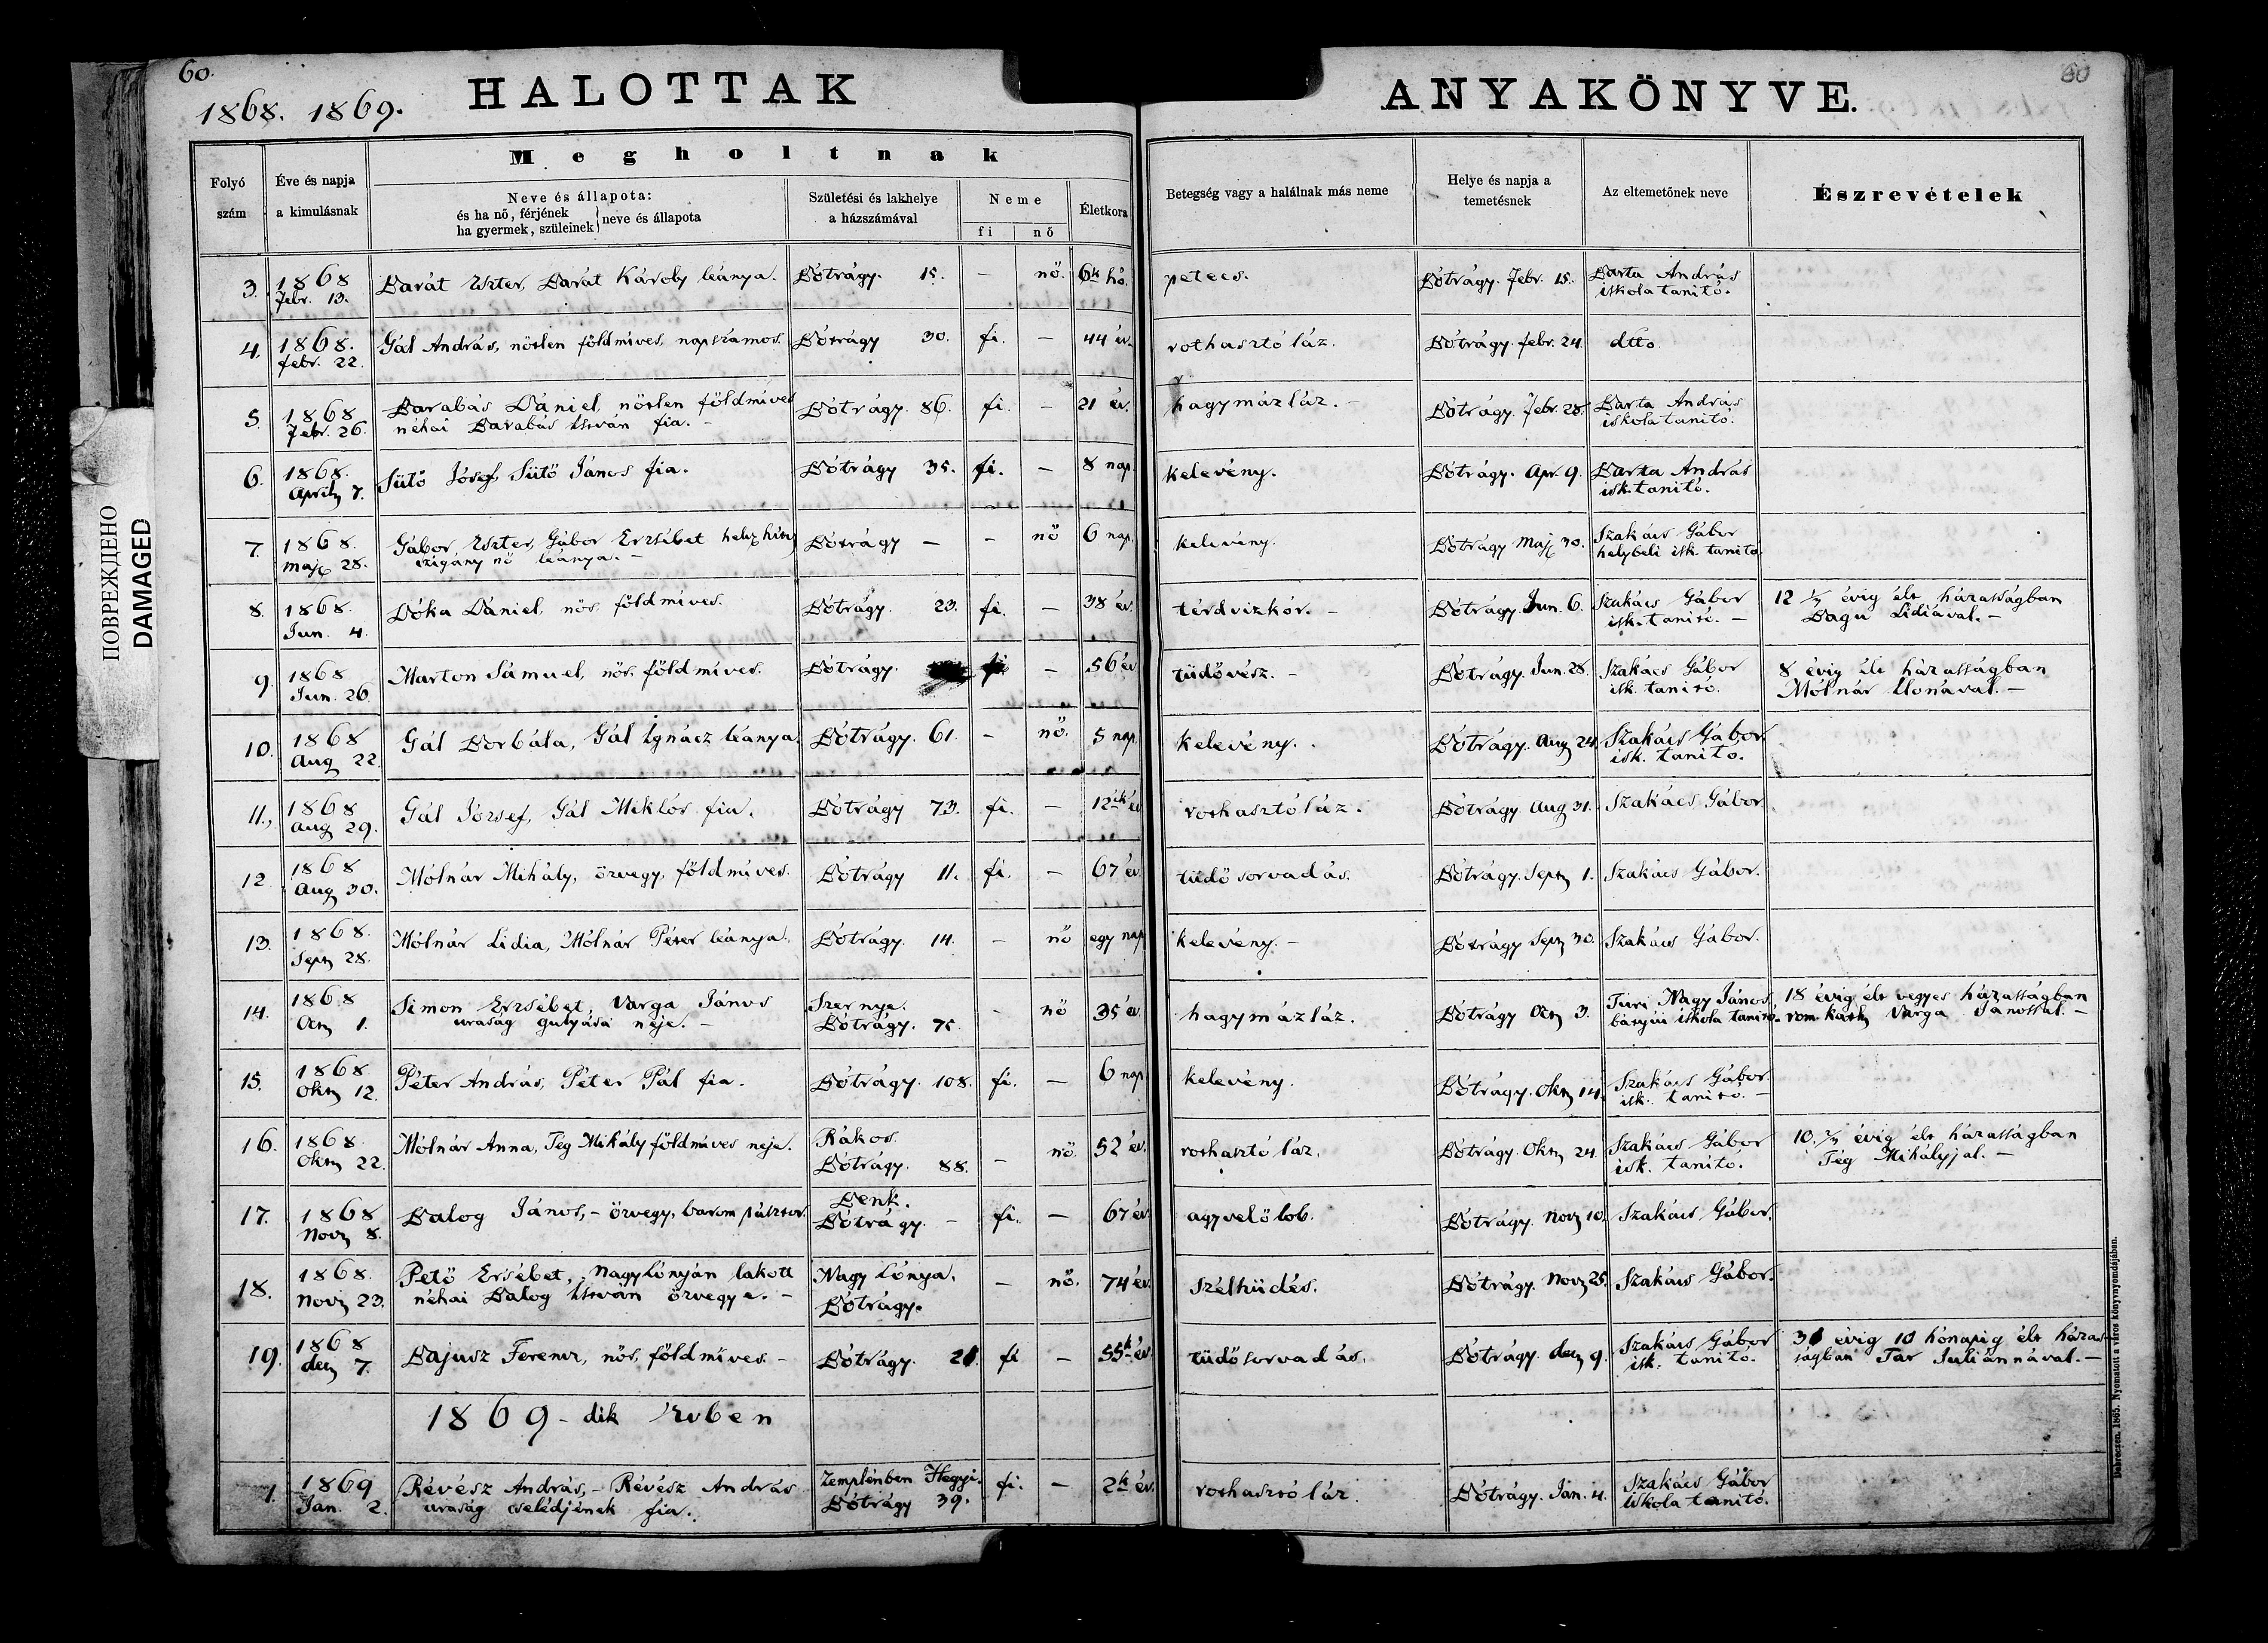 60.
60
1868. 1869.
HALOTTAK
ANYAKÖNYVE.
Megholtnak
Folyó szám
Éve és napja a kimulásnak
Neve és állapota:
és ha nő, férjének
ha gyermek, szüleinek } neve és állapota
Születési és lakhelye a házszámával
Neme
fi
nő
Életkora
Betegség vagy a halálnak más neme
Helye és napja a temetésnek
Az eltemetőnek neve
Észrevételek
3. 1868 Febr. 13. Barát Eszter, Barát Károly leánya. Bótrágy. 15. – nő. 6k hó. petecs. Bótrágy. Febr. 15. Barta András iskola tanitó.
4. 1868. febr. 22. Gál András, nőtlen földmíves, napszámos. Bótrágy 30. fi. – 44 év. rothasztó láz. Bótrágy. febr. 24. dtto.
5. 1868 Febr. 26. Barabás Dániel, nőtlen földmíves néhai Barabás István fia. – Bótrágy. 86. fi. – 21 év. hagymáz láz. – Bótrágy. Febr. 28. Barta András iskola tanitó.
6. 1868. April 7. Sütő Jósef, Sütő János fia. Bótrágy 35. fi. – 8 nap. kelevény. Bótrágy. Apr. 9. Barta András isk. tanitó.
7. 1868. maj 28. Gábor Eszter, Gábor Erzsébet czigány nő leánya. – Bótrágy – – nő 6 nap. kelevény. Bótrágy Maj 30. Szakács Gábor helybeli isk. tanitó.
8. 1868. Jun. 4. Dóka Dániel, nős. földmíves. Bótrágy. 23. fi. – 38 év. térdvizkór. – Bótrágy. Jun. 6. Szakács Gábor isk. tanitó. – 12 évig élt házasságban Bagu Lidiával. –
9. 1868 Jun. 26. Marton Sámuel, nős. földmíves. Bótrágy. fi – 56 év tüdővész. – Bótrágy. Jun. 28. Szakács Gábor isk. tanitó. 8 évig élt házasságban Mólnár Ilonával. –
10. 1868 Aug 22. Gál Borbála, Gál Ignácz leánya. Bótrágy. 61. – nő. 5 nap. kelevény. Bótrágy. Aug 24. Szakács Gábor. isk. tanitó.
11. 1868 Aug 29. Gál József, Gál Miklós fia. Bótrágy 73. fi. – 12ik év rothasztó láz. Bótrágy. Aug 31. Szakács Gábor.
12. 1868 Aug 30. Mólnár Mihály, özvegy, földmíves. Bótrágy 11. fi. – 67 év. tüdő sorvadás. Bótrágy. Sept 1. Szakács Gábor.
13. 1868. Sept 28. Mólnár Lidia, Mólnár Péter leánya. Bótrágy. 14. – nő egy nap kelevény. – Bótrágy Sept 30. Szakács Gábor.
14. 1868 Oct 1. Simon Erzsébet, Varga János uraság gulyása neje. – Szernye. Bótrágy. 75. – nő 35 év. hagymáz láz. Bótrágy Oct 3. Túri Nagy János, bátyúi iskola tanitó. 18 évig élt vegyes házasságban rom. kath Varga Jánossal. –
15. 1868 Okt 12. Péter András, Péter Pál fia. Bótrágy. 108. fi. – 6 nap. kelevény. Bótrágy. Okt 14. Szakács Gábor. isk. tanitó. –
16. 1868. Okt 22. Mólnár Anna, Tég Mihály földmíves neje. Rákos. Bótrágy. 88. – nő. 52 év. rothasztó láz. Bótrágy. Okt 24. Szakács Gábor isk. tanitó. 10. évig élt házasságban Tég Mihályjal. –
17. 1868 Nov 8. Balog János, – özvegy, barom pásztor. Benk. Bótrágy. – fi. – 67 év. agyvelőlob. Bótrágy. Nov 10. Szakács Gábor.
18. 1868. Nov 23. Pető Ersébet, Nagylónyán lakott néhai Balog István özvegye. – Nagy Lónya. Bótrágy. – nő. 74 év. szélhüdés. Bótrágy. Nov 25. Szakács Gábor.
19. 1868 dec 7. Bajusz Ferencz, nős. földmíves. – Bótrágy. 21. fi – 55k év. tüdősorvadás. Bótrágy. dec 9. Szakács Gábor isk. tanitó. 31 évig 10 hónapig élt házasságban Tar Juliánnával. –
1869-dik Évben
1. 1869 Jan. 2. Révész András, – Révész András uraság cselédjének fia. Zemplénben Hegyi. Bótrágy 39. fi. – 2k év. rothasztó láz. Bótrágy. Jan. 4. Szakács Gábor iskola tanitó.
Debreczen, 1865. Nyomatott a város könyvnyomdájában.
ПОВРЕЖДЕНО
DAMAGED